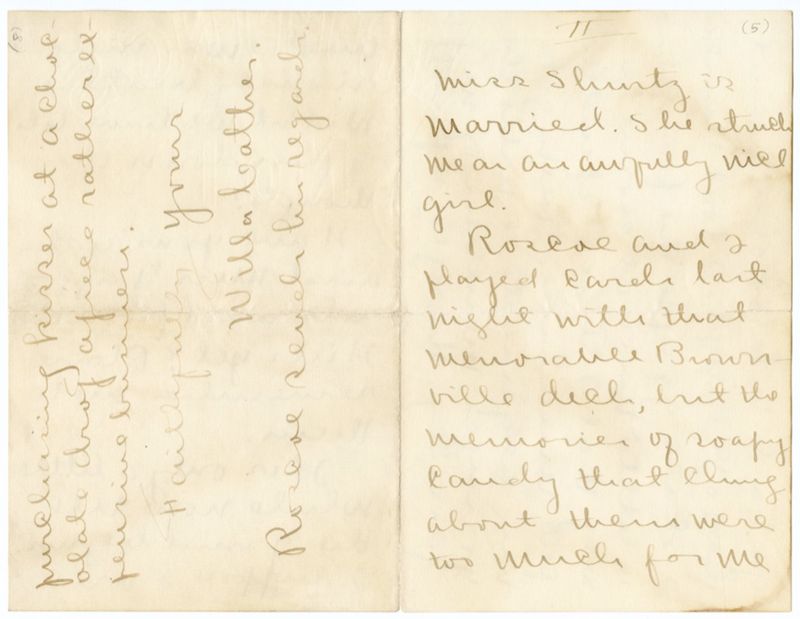 (8)
purchasing kisses at a choc-
olate drop apiece rather ex
pensive business.
Faithfully
Yours
Willa Cather.
Roscoe sends his regards
II
(5)
Miss Shurtz is
married. She struck
me as an awfully nice
girl.
Roscoe and I
played cards last
night with that
memorable Brown-
ville deck, but the
memories of soapy
candy that clung
about them were
too much for me